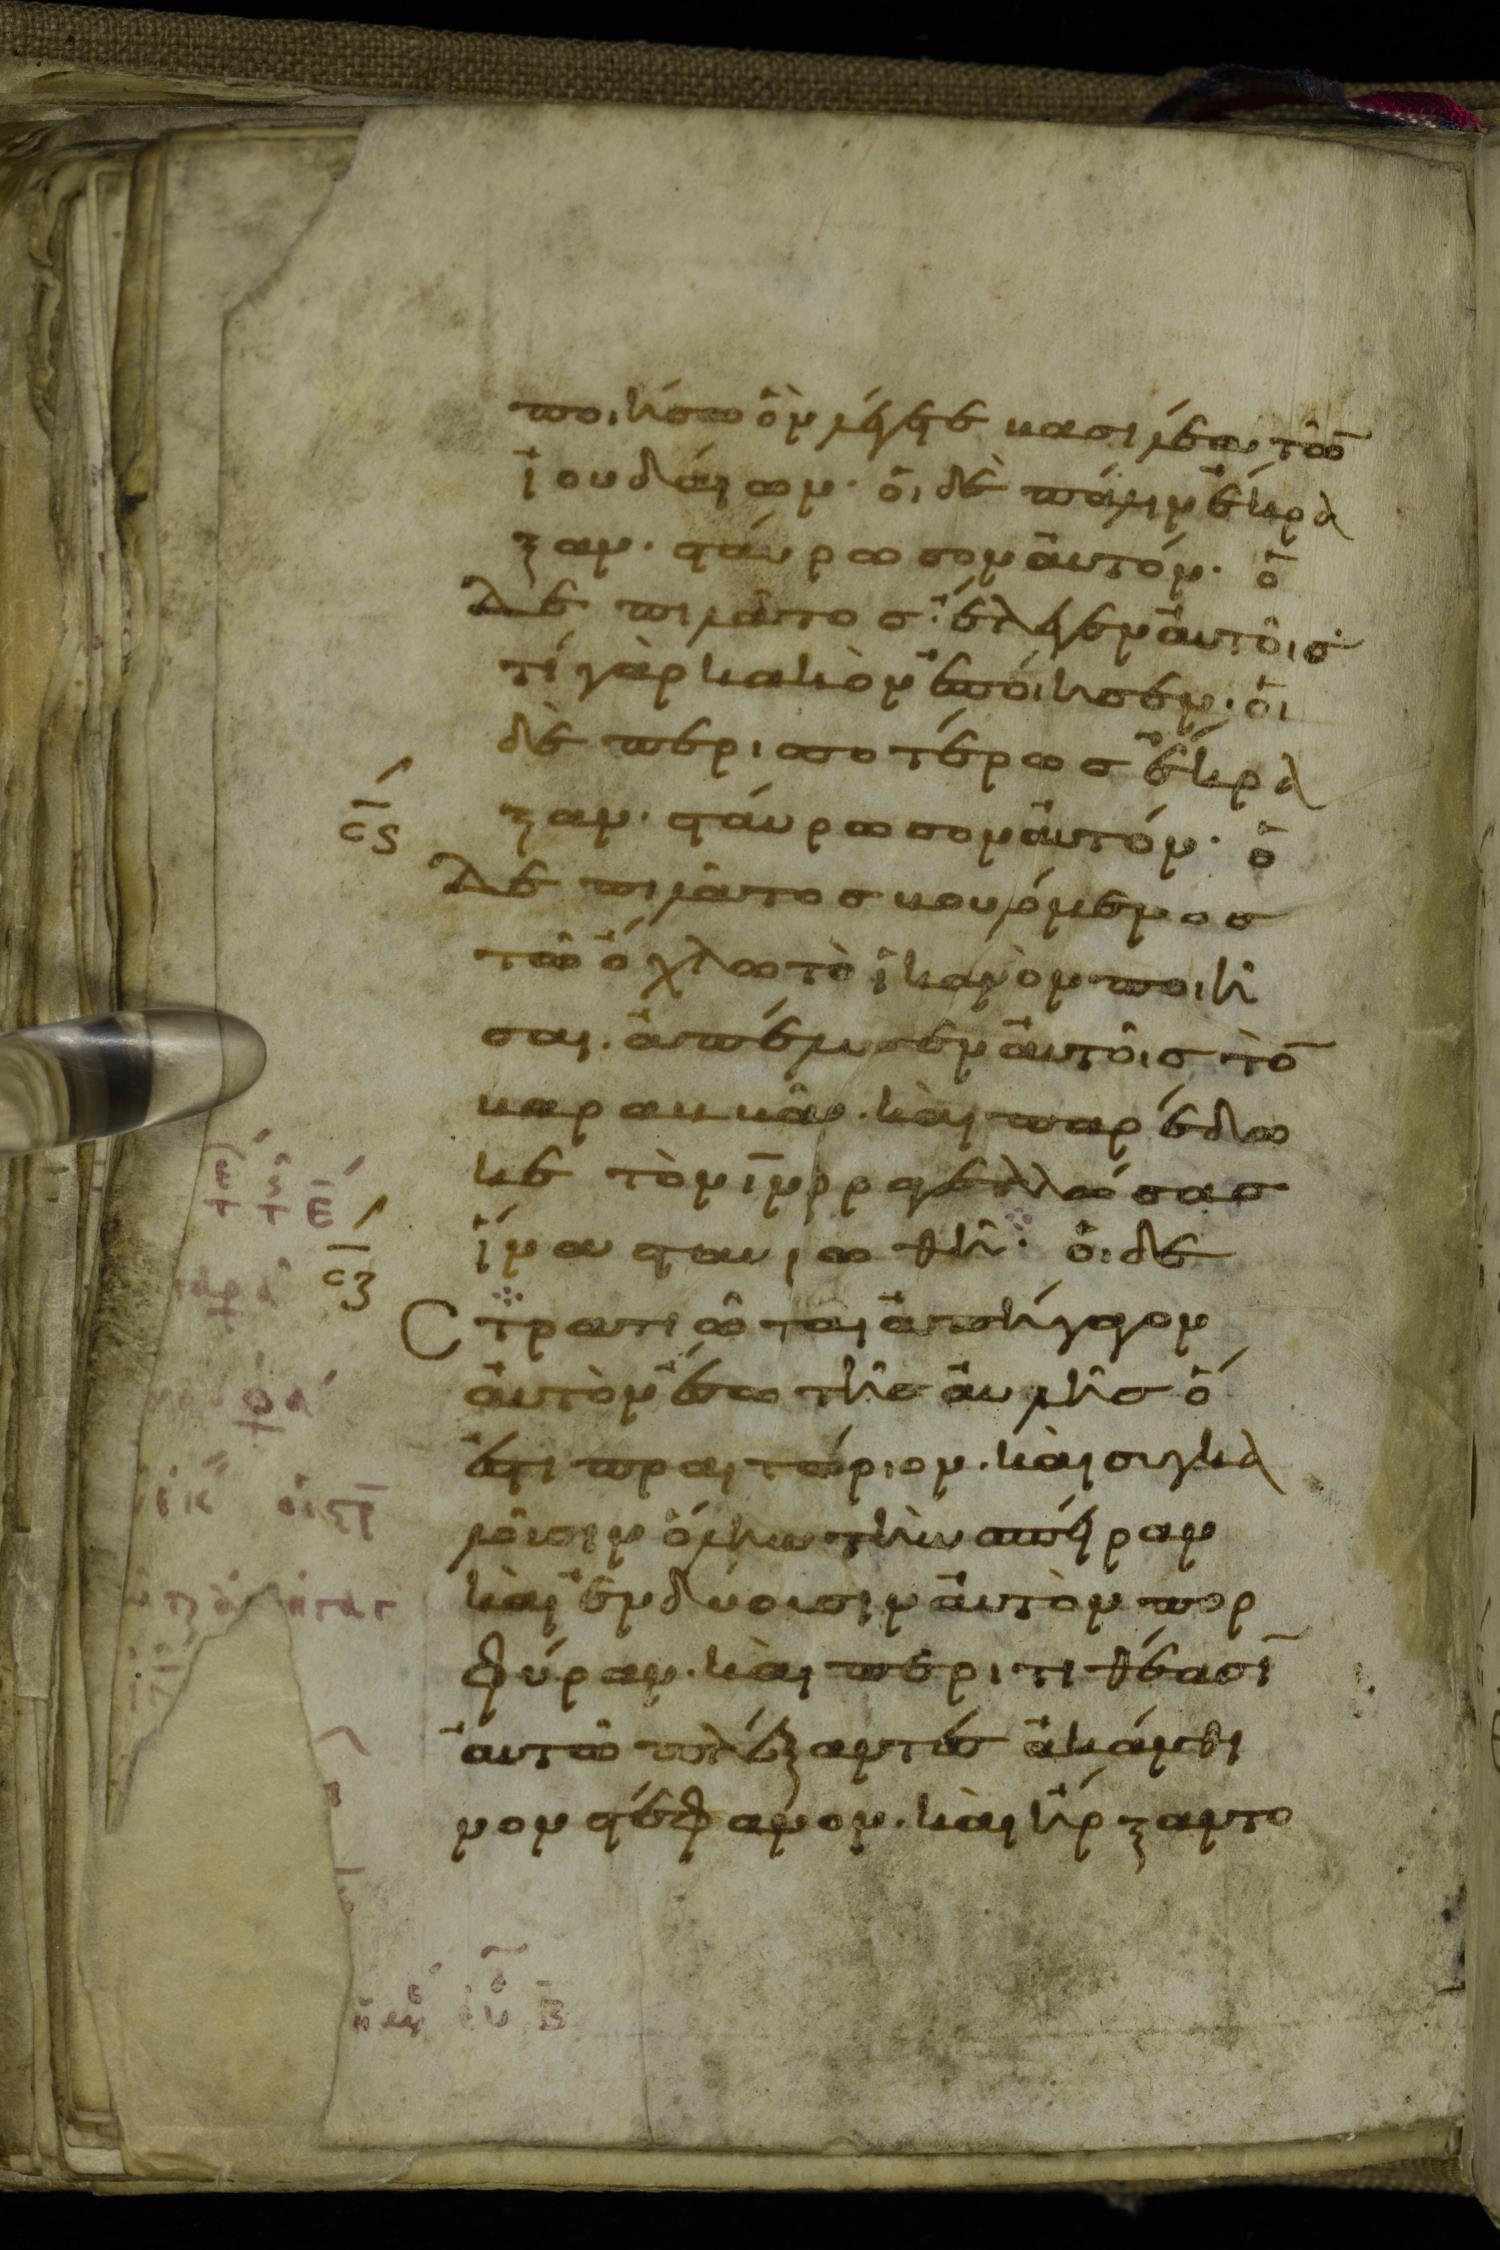 ποιήσω ὃν λέγετε βασιλέα τῶ̅
ἰουδαίων· οἱ δὲ πάλιν ἔκρα
ξαν· σταύρωσον αὐτόν· ὁ
δὲ πιλάτος ἔλεγεν αὐτοῖς·
τί γὰρ κακὸν ἐποίησεν· οἱ
δὲ περισσοτέρως ἔκρα
σ̅ϛ ξαν· σταύρωσον αὐτόν· ὁ
δὲ πιλάτος βουλόμενος
τῶ ὄχλω τὸ ἱκανὸν ποιῆ
σαι· ἀπέλυσεν αὐτοῖς τὸ̅
βαραββᾶν· καὶ παρέδω
κε τὸν ι̅ν̅ φραγελλώσας
σ̅ζ ἵνα σταυρωθῆ· οἱ δὲ
Στρατιῶται ἀπήγαγον
αὐτὸν ἔσω τῆς αὐλῆς ὅ
ἐστι πραιτώριον· καὶ συγκα
λοῦσιν ὅλην τὴν σπεῖραν
καὶ ἐνδύουσιν αὐτὸν πορ
φύραν· καὶ περιτιθέασι̅
αὐτῶ πλέξαντες ἀκάνθι
νον στέφανον· καὶ ἤρξαντο